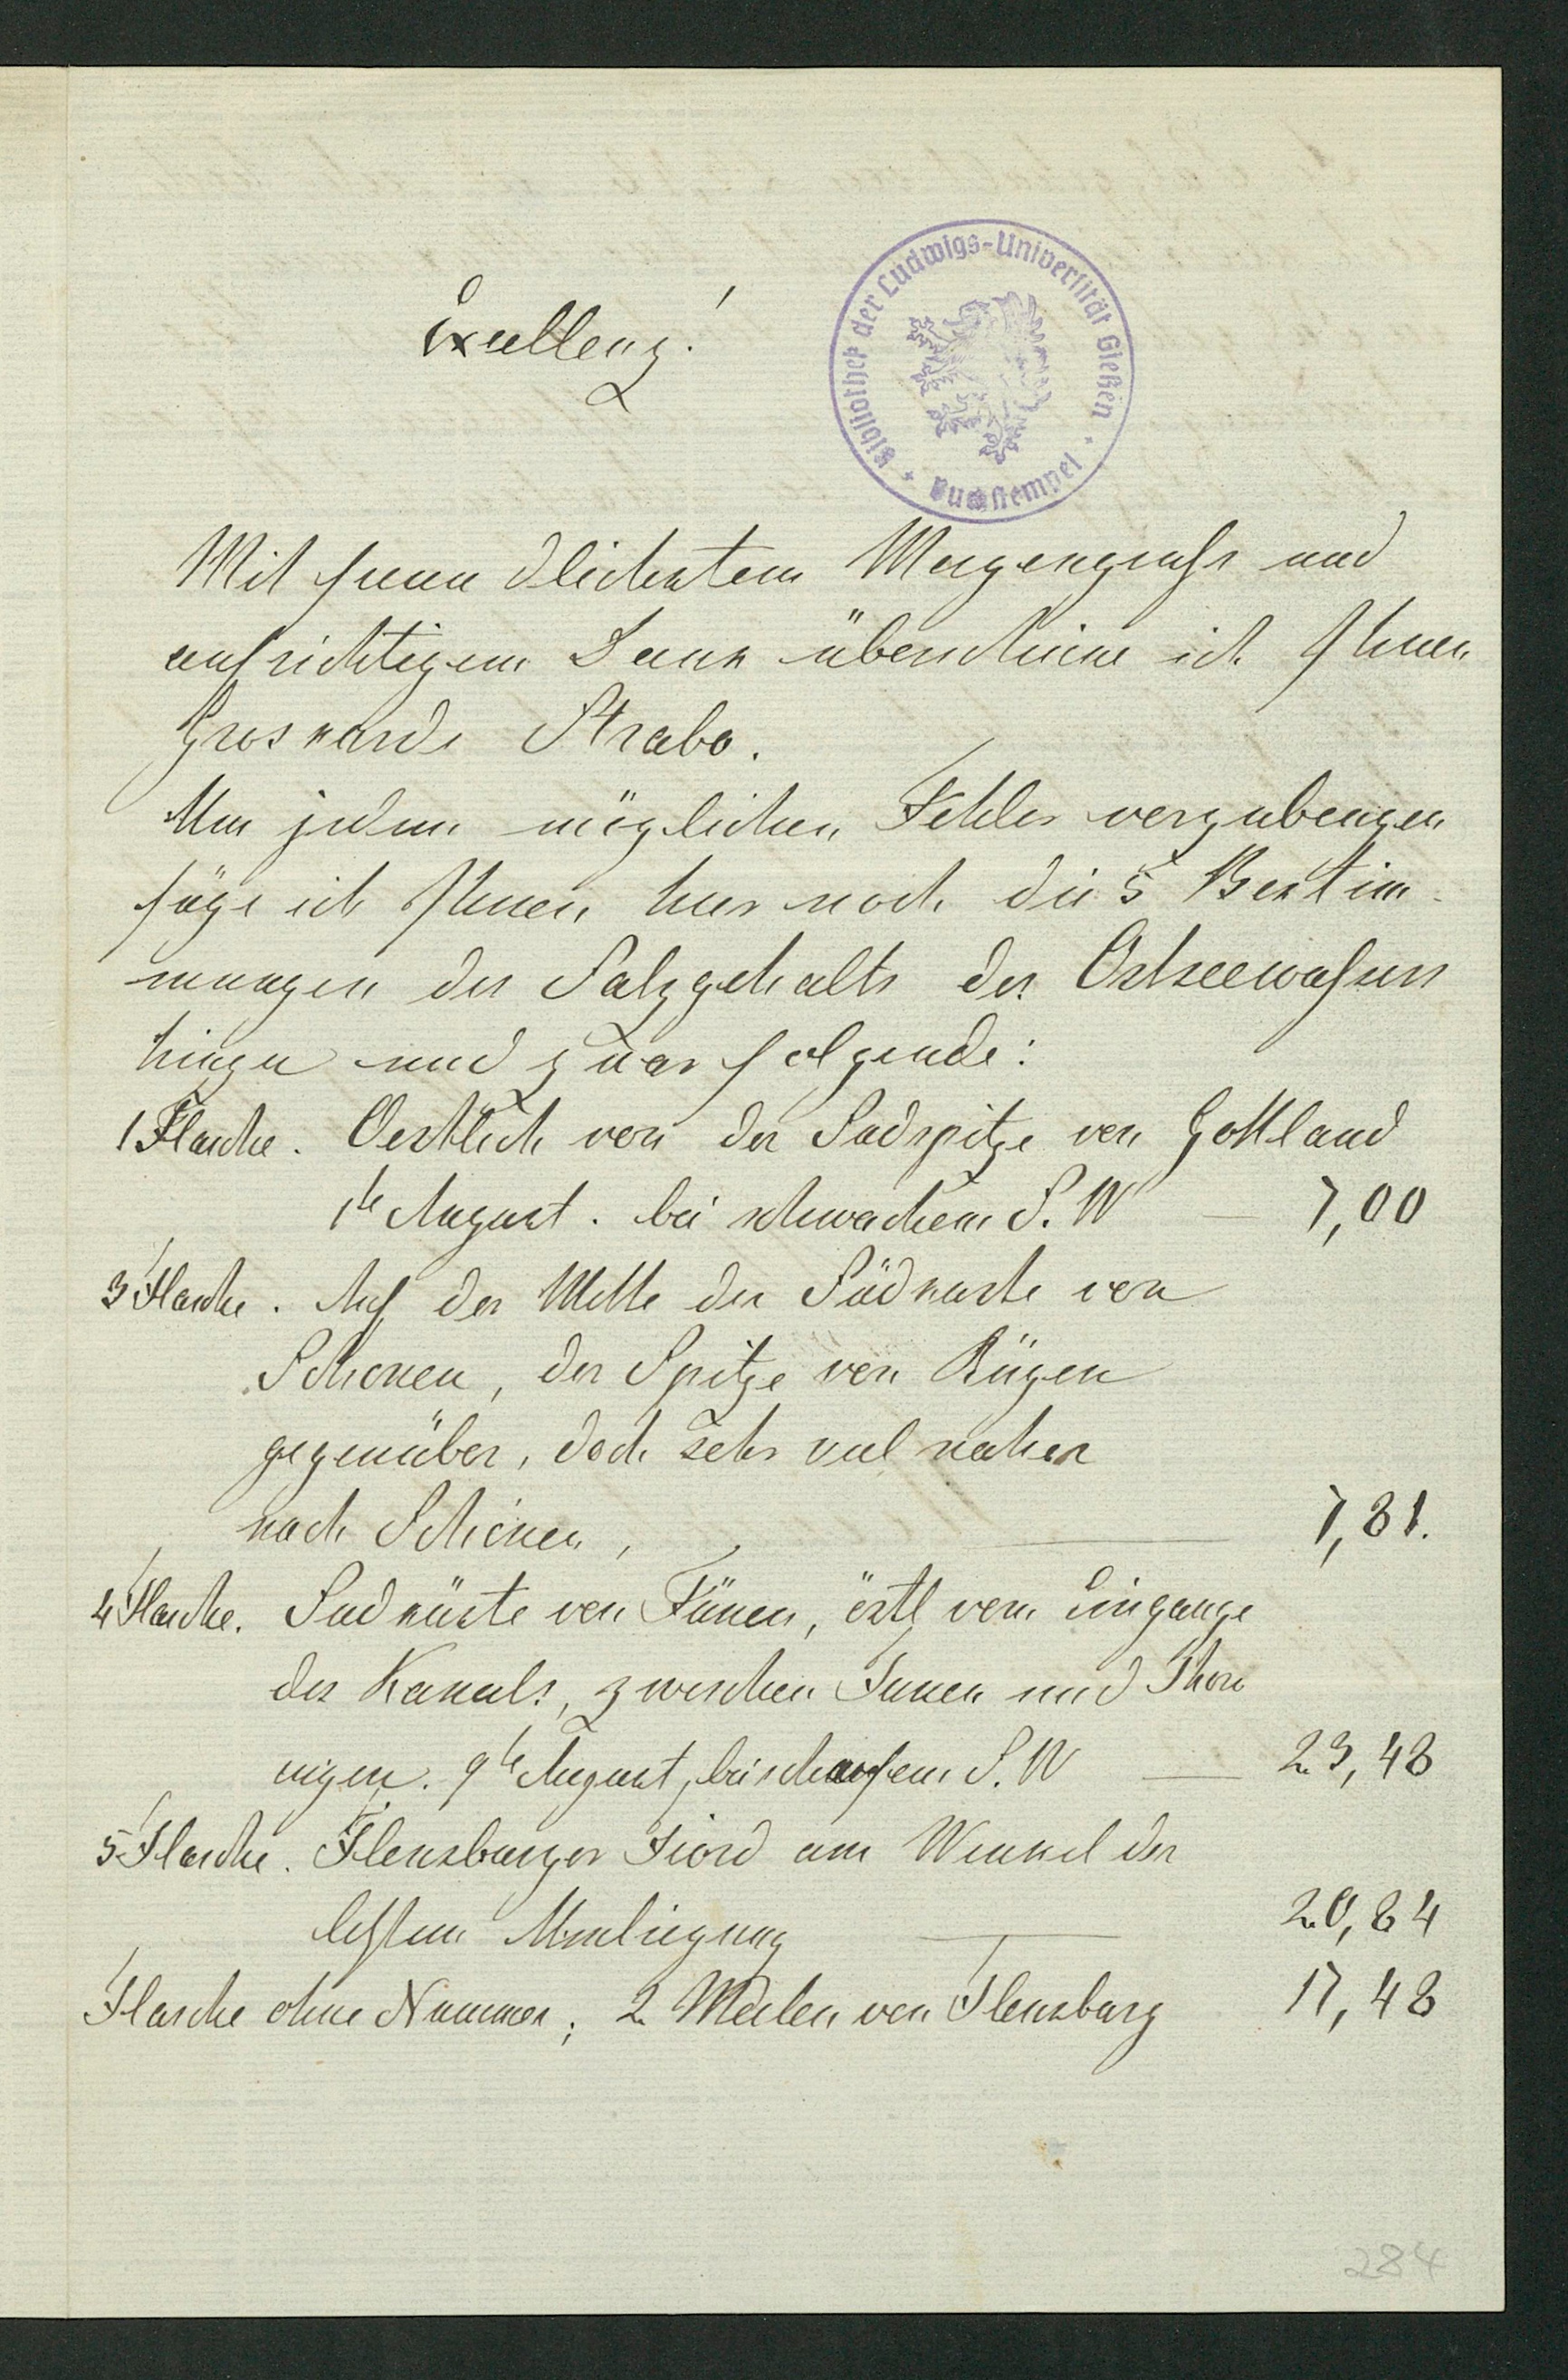 Excellenz!
Bibliothek der Ludwigs-Universität Gießen
Buchstempel
Mit freundlichstem Morgengruß und
aufrichtigem Dank übersende ich Ihnen
Groskurds Strabo.
Um jedem möglichen Fehler vorzubeugen
füge ich Ihnen hier noch die 5 Bestim-
mungen des Salzgehalts des Ostseewaßers
hinzu und zwar folgende:
1 Flasche. Oestlich von der Südspitze von Gottland
1te August. bei schwachem S. W — 7,00
3 Flasche. Auf der Mitte der Südküste von
Schonen, der Spitze von Rügen
gegenüber, doch sehr viel näher
nach Schonen, — 7,81.
4 Flasche. Südküste von Fünen, östl vom Eingange
des Kanals, zwischen Fünen und Thor
nigen. 9te August, bei scharfem S. W — 23,48
5 Flasche. Flensburger Fiord am Winkel der
letzten Umbiegung — 20,84
Flasche ohne Nummer; 2 Meilen von Flensburg 17,48
284